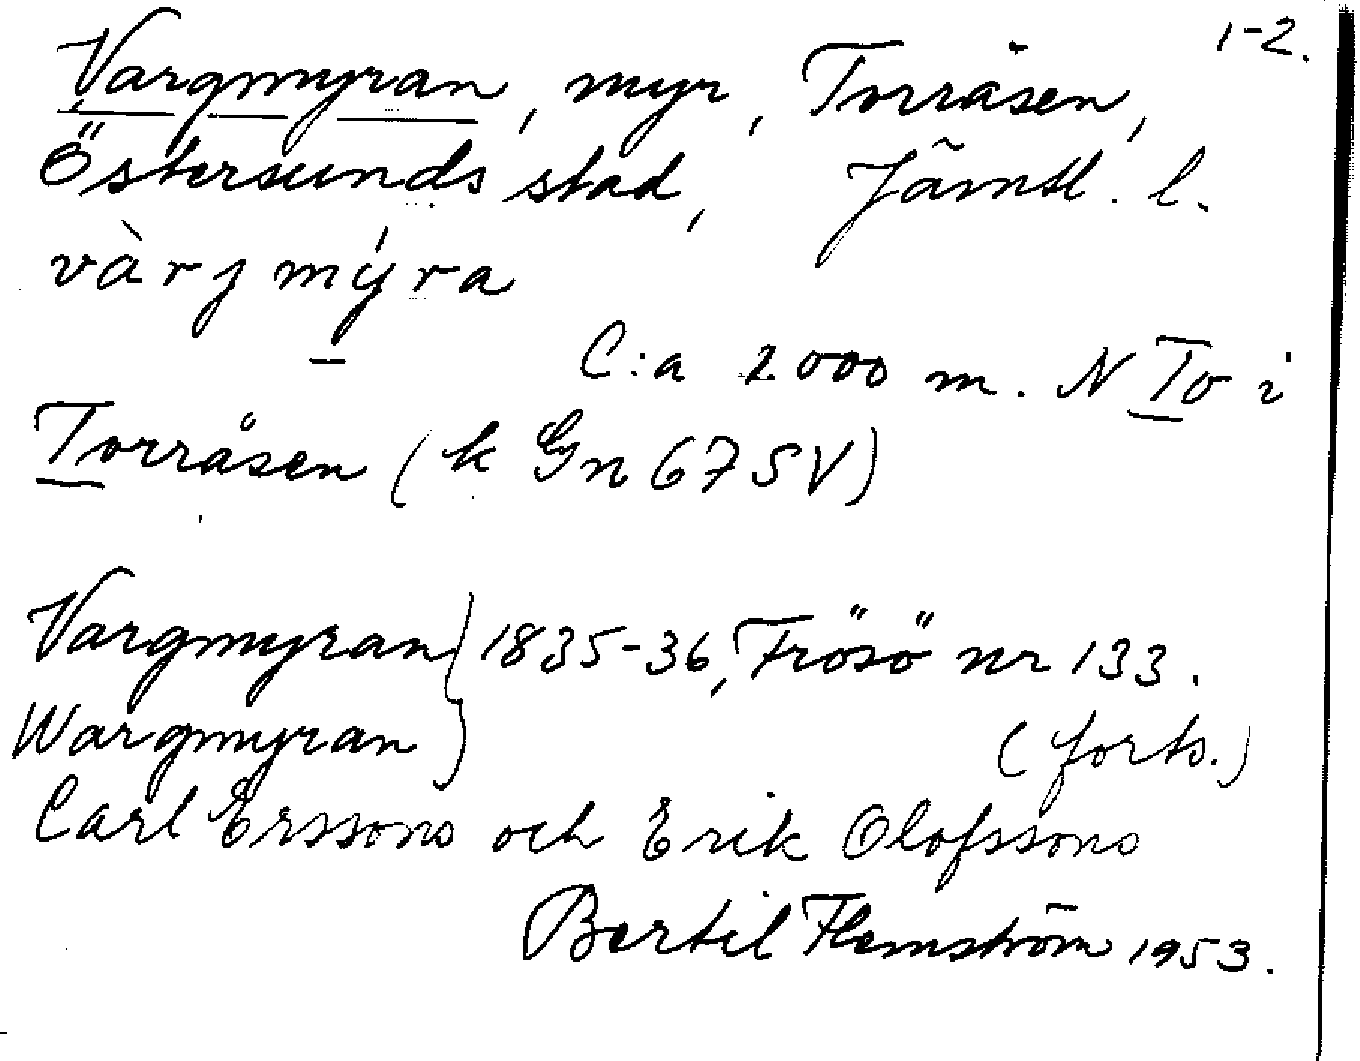 1-2.
Vargmyran, myr, Torråsen,
Östersunds stad, Jämtl. l.
vàrjmýra
C:a 2000 m. N To i
Torråsen (k Gn 67 SV)
Vargmyran } 1835-36, Frösö nr 133.
Wargmyran (forts.)
Carl Erssons och Erik Olofssons
Bertil Flemström 1953.